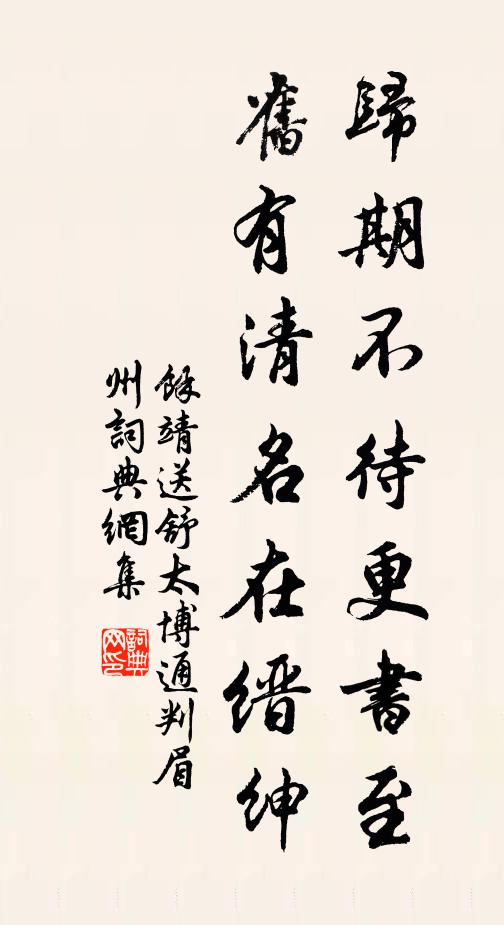 歸期不待更書至
舊有清名在縉紳
餘靖送舒太博通判眉
州詞典網集
詞典
网印